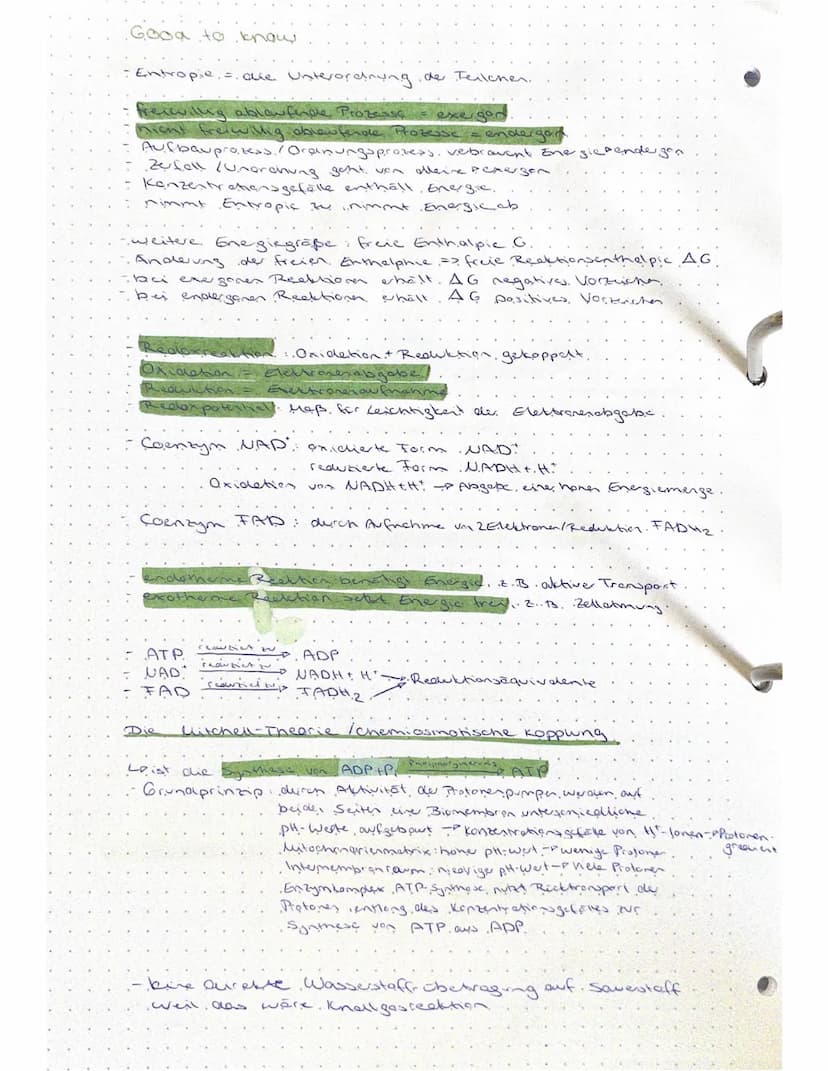 Good to know
- Entropie = die Unterordnung der Teilchen
- freiwillig ablaufende Prozesse = exergon
- nicht freiwillig ablaufende Prozesse = endergon
- Aufbauprozess / Ordnungsprozess verbraucht Energie → endergon
- Zufall / Unordnung geht von alleine → exergon
- Konzentrationsgefälle enthält Energie
- nimmt Entropie zu, nimmt Energie ab
- weitere Energiegröße: freie Enthalpie G
- Änderung der freien Enthalphie => freie Reaktionsenthalpie ΔG
- bei exergonen Reaktionen erhält ΔG negatives Vorzeichen
- bei endergonen Reaktionen erhält ΔG positives Vorzeichen
- Redoxreaktion: Oxidation + Reduktion gekoppelt
Oxidation = Elektronenabgabe
Reduktion = Elektronenaufnahme
Redoxpotential: Maß für Leichtigkeit der Elektronenabgabe
- Coenzym NAD⁺: oxidierte Form NAD⁺
reduzierte Form NADH + H⁺
Oxidation von NADH + H⁺ → Abgabe einer hohen Energiemenge
- Coenzym FAD: durch Aufnahme von 2 Elektronen/Reduktion FADH₂
- endotherme Reaktion benötigt Energie, z.B. aktiver Transport
exotherme Reaktion setzt Energie frei, z.B. Zellatmung
- ATP reduziert zu → ADP
- NAD⁺ reduziert zu → NADH + H⁺ → Reduktionsäquivalente
- FAD reduziert zu → FADH₂
Die Mitchell-Theorie / chemiosmotische Kopplung
↳ ist die Synthese von ADP + Pᵢ Phosphorylierung → ATP
- Grundprinzip: durch Aktivität der Protonenpumpen werden auf
beiden Seiten einer Biomembran unterschiedliche
pH-Werte aufgebaut → Konzentrationsgefälle von H⁺-Ionen → Protonen-
gradient
Mitochondrienmatrix: hoher pH-Wert → wenige Protonen
Intermembranraum: niedriger pH-Wert → viele Protonen
Enzymkomplex ATP-Synthase nutzt Rücktransport der
Protonen entlang des Konzentrationsgefälles zur
Synthese von ATP aus ADP
- keine direkte Wasserstoff-übertragung auf Sauerstoff
weil das wäre Knallgasreaktion